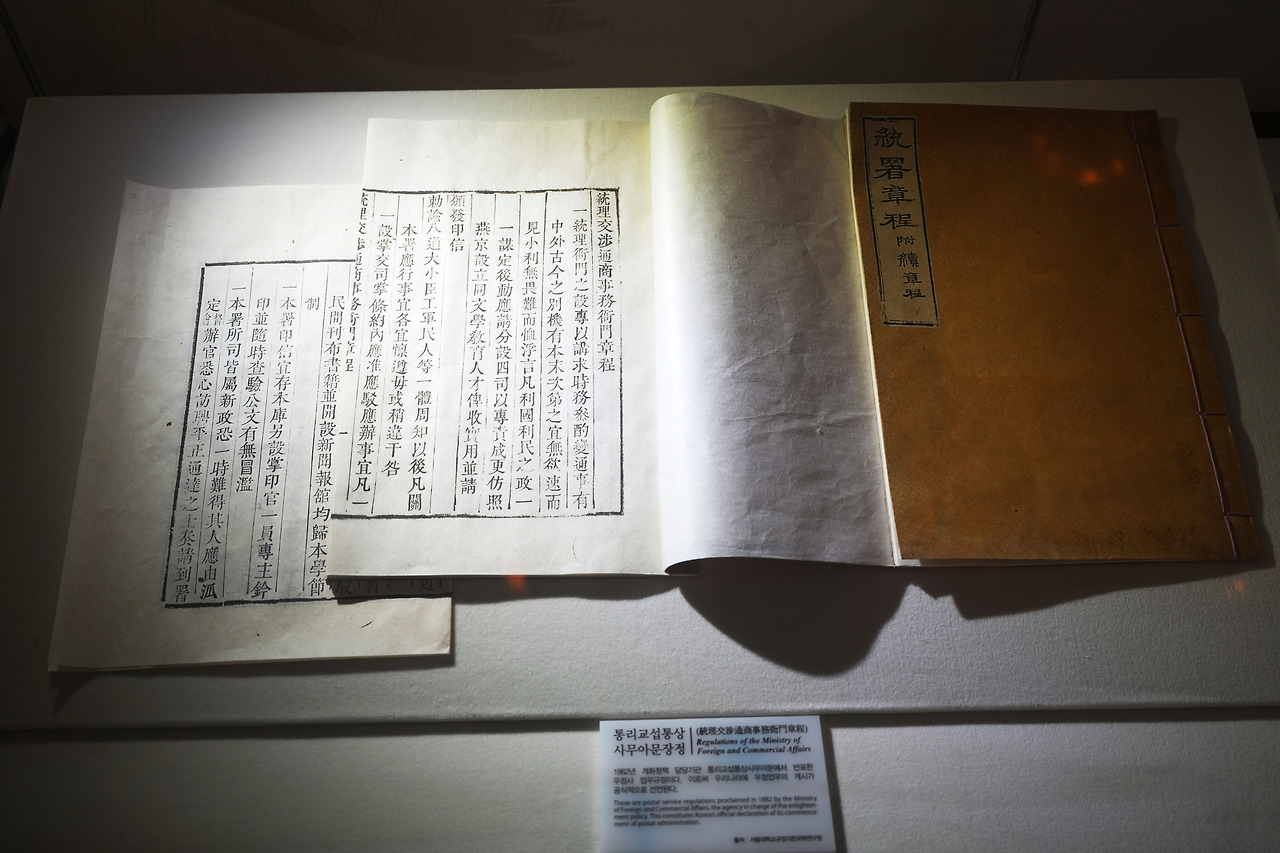 統署章程 附續章程
統理交涉通商事務衙門章程
一統理衙門之設專以講求時務參酌變通事有
中外古今之別機有本末次第之宜無欲速而
見小利無畏難而恤浮言凡利國利民之政一
一謀定後動應請分設四司以專責成更仿照
燕京設立同文學敎育人才俾收實用並請
頒發印信
勅諭八道大小臣工軍民人等一體周知以後凡關
本署應行事宜各宜懍遵毋或稍違干咎
一設掌交司掌條約內應准應駁應辦事宜凡一
統理交涉通商事務衙門章程
民間刊布書籍並開設新聞報館均歸本學節
制
一本署印信宜存本庫另設掌印官一員專主鈐
印並隨時查驗公文有無冒濫
一本署所司皆屬新政恐一時難得其人應由
辦官悉心訪聘平正通達之士奏請到署
통리교섭통상
사무아문장정
(統理交涉通商事務衙門章程)
Regulations of the Ministry of
Foreign and Commercial Affairs
1882년 개화정책 담당기관 통리교섭통상사무아문에서 반포한
우정사 업무규정이다. 이로써 우리나라에 우정업무의 개시가
공식적으로 선언된다.
These are postal service regulations proclaimed in 1882 by the Ministry
of Foreign and Commercial Affairs, the agency in charge of the enlighten-
ment policy. This constitutes Korea's official declaration of its commence-
ment of postal administration.
출처 : 서울대학교규장각한국학연구원